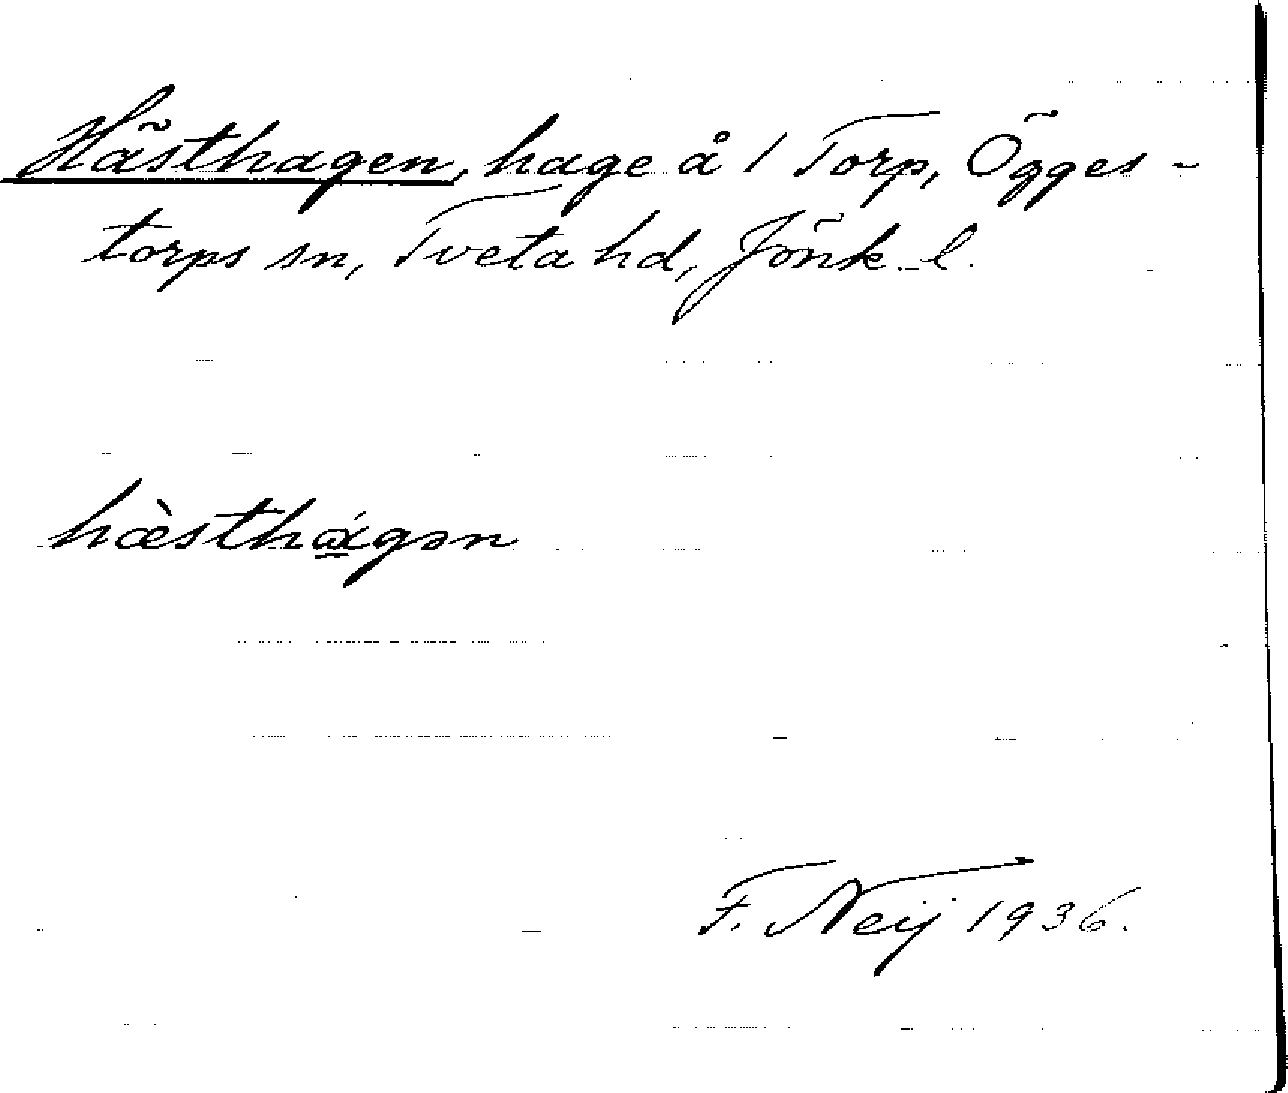 Hästhagen, hage å 1 Torp, Ögges-
torps sn, Tveta hd, Jönk. l.
hæ̀sthɑ́gən
F. Neij 1936.